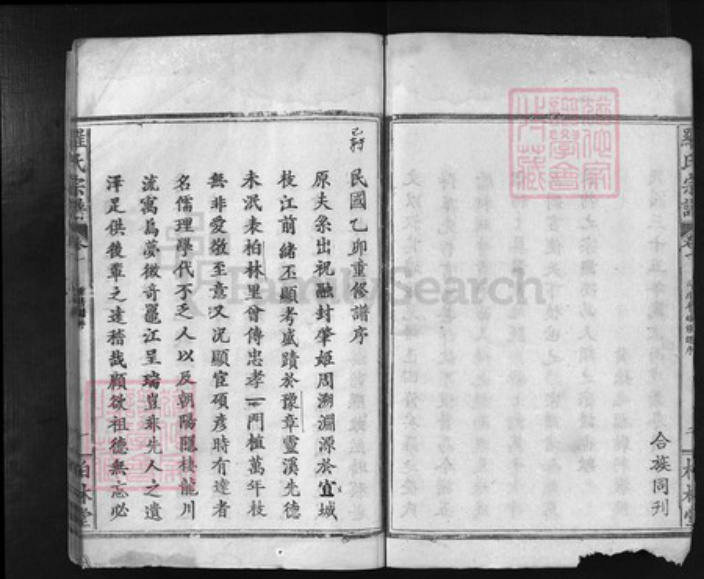 合族同刊
民國乙卯重修譜序
原夫系出祝融封肇姬周溯淵源於宜城
枝江前緒丕顯考盛蹟於豫章靈溪先德
未泯表柏林里曾傳忠孝一門植萬年枝
無非愛敬至意又況顯宦碩彥時有達者
名儒理學代不乏人以及朝陽隱棲龍川
流寓烏夢徵奇鼉江呈瑞豈非先人之遺
澤足供後輩之達稽哉顧欲祖德無忘必
羅氏宗譜
卷一
一
柏林堂
FamilySearch